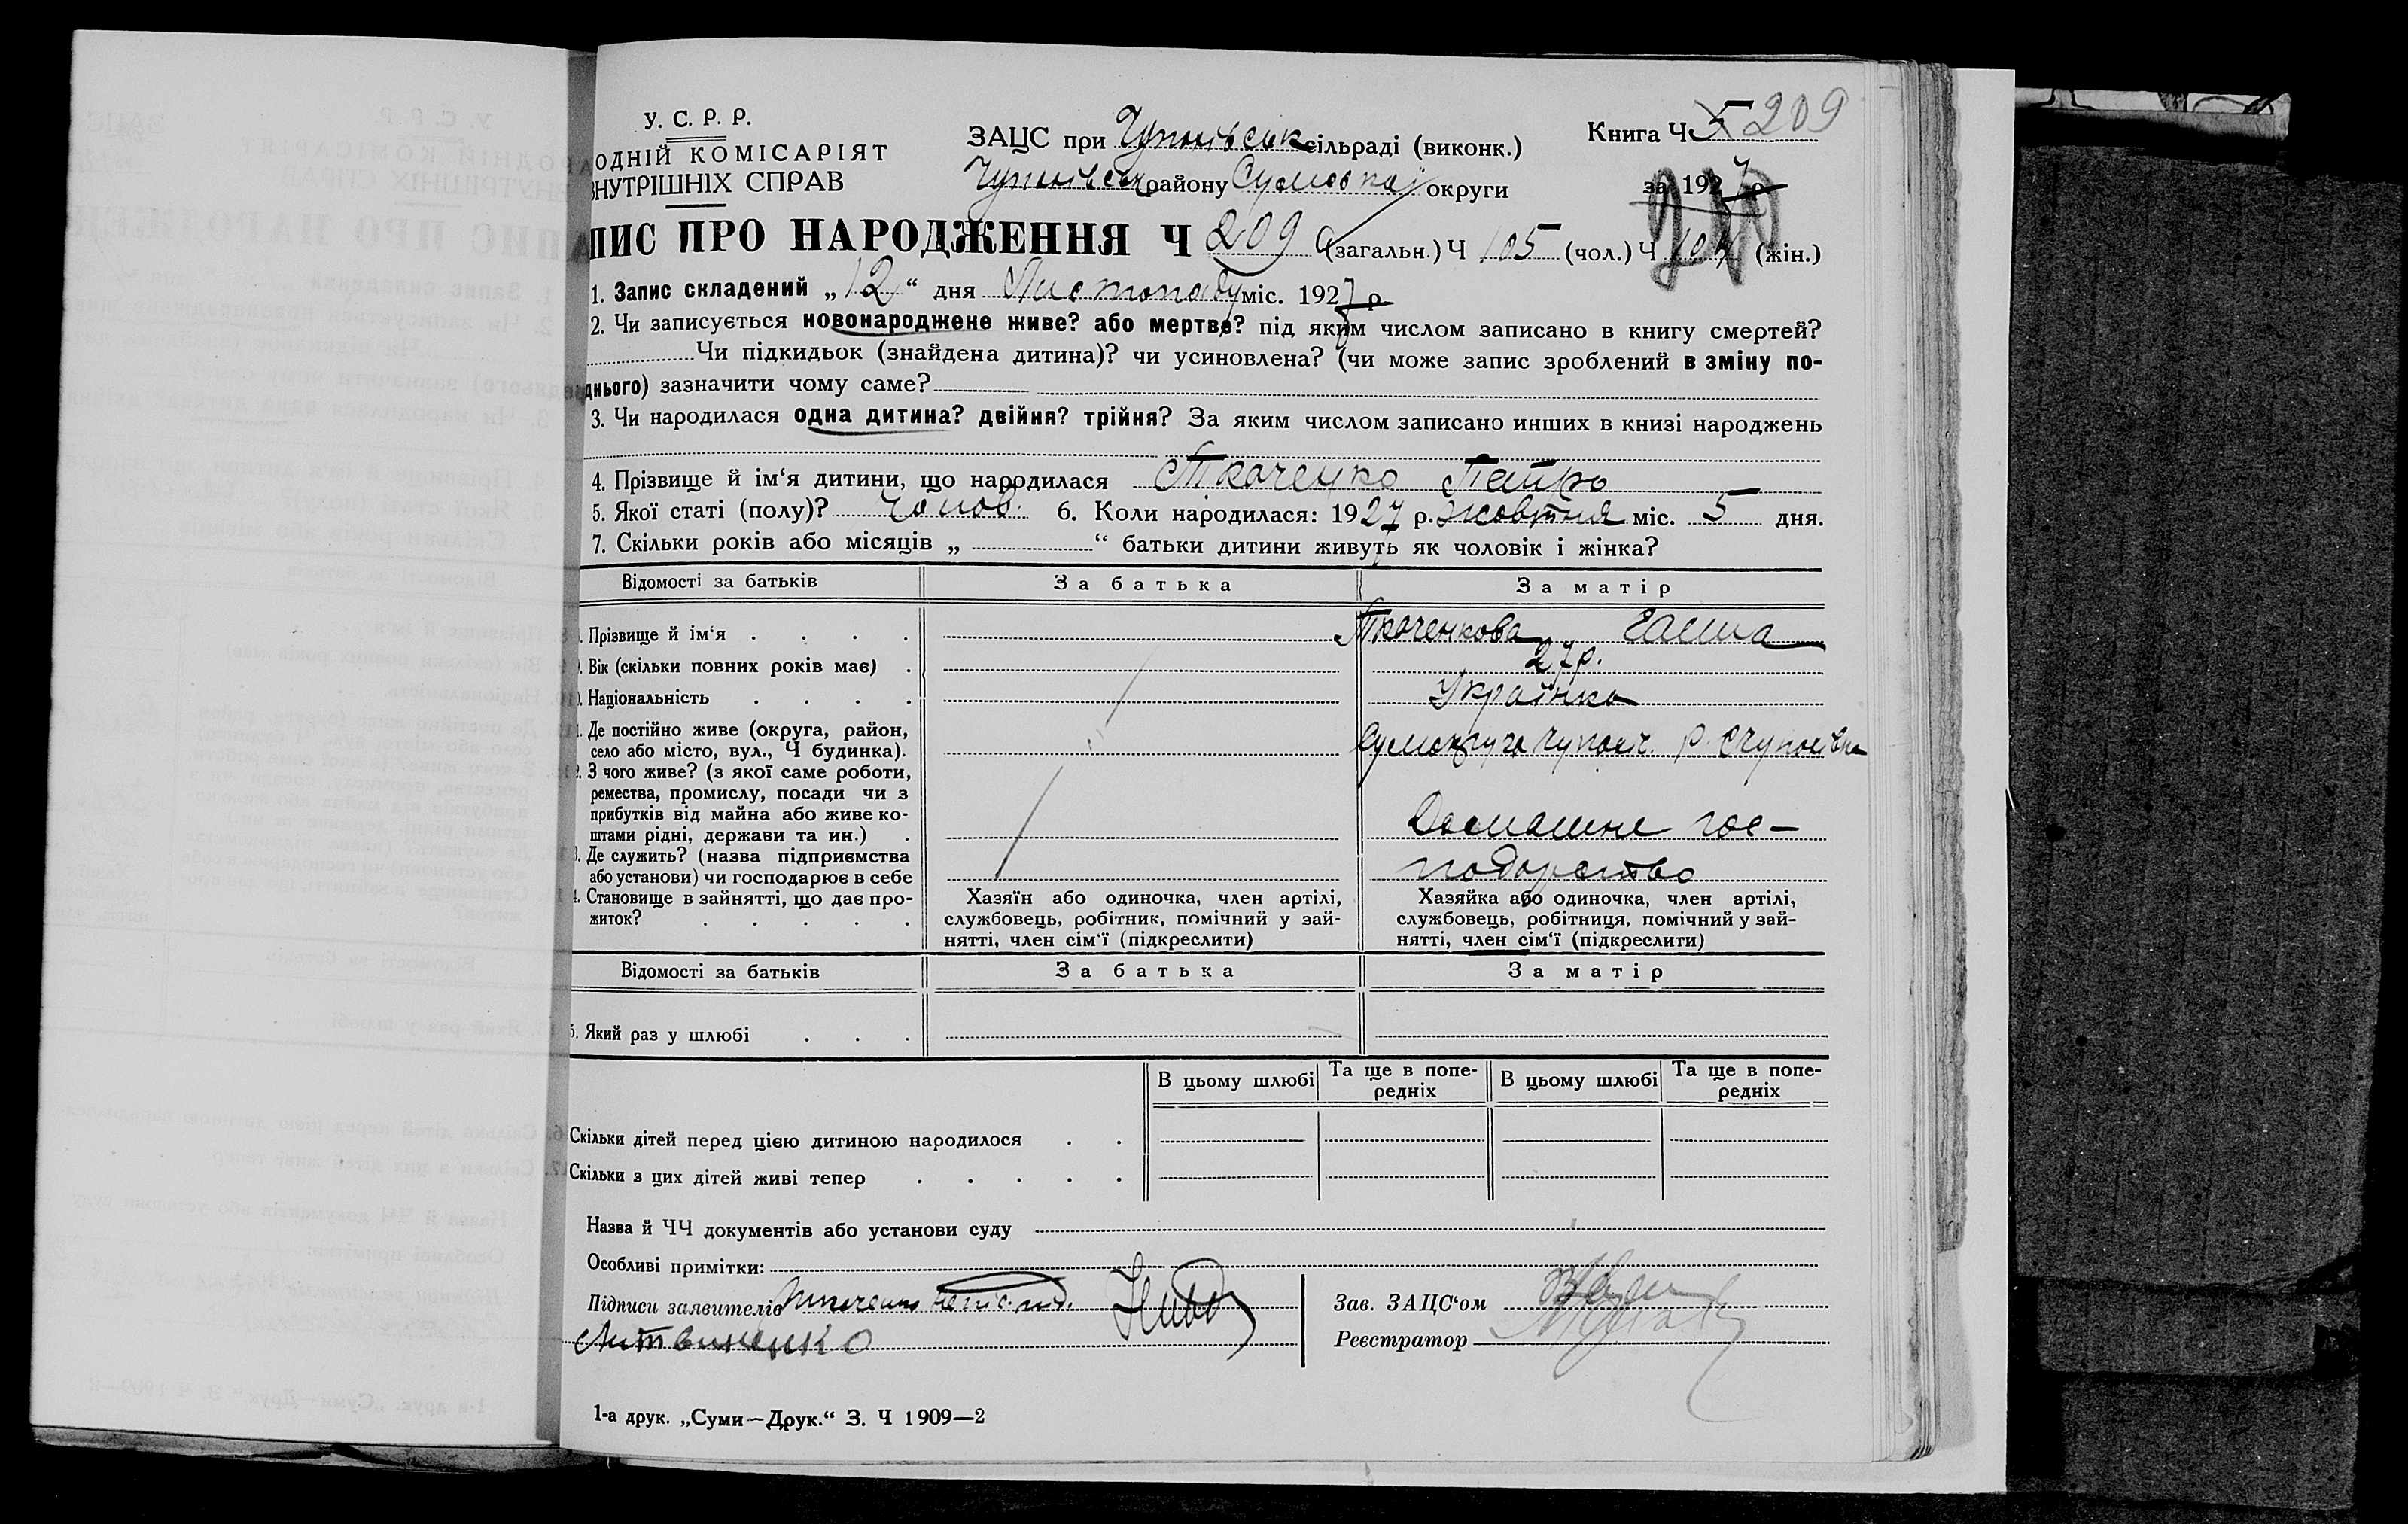 У. С. Р. Р.
ОДНІЙ КОМІСАРІЯТ
ВНУТРІШНІХ СПРАВ
ЗАЦС при Чупахівськ сільраді (виконк.)
Чупахівськ району Сумської округи
Книга Ч 5 209
за 1927 р.
ПИС ПРО НАРОДЖЕННЯ Ч 209 (загальн.) Ч 105 (чол.) Ч 104 (жін.)
1. Запис складений „12“ дня Листопаду міс. 1927 р.
2. Чи записується новонароджене живе? або мертве? під яким числом записано в книгу смертей?
Чи підкидьок (знайдена дитина)? чи усиновлена? (чи може запис зроблений в зміну по-
днього) зазначити чому саме?
3. Чи народилася одна дитина? двійня? трійня? За яким числом записано инших в книзі народжень
4. Прізвище й ім‘я дитини, що народилася Ткаченко Петро
5. Якої статі (полу)? чолов. 6. Коли народилася: 1927 р. жовтня міс. 5 дня.
7. Скільки років або місяців „ “ батьки дитини живуть як чоловік і жінка?
Відомості за батьків За батька За матір
Прізвище й ім‘я Ткаченкова Галина
Вік (скільки повних років має) 27 р.
Національність Українка
Де постійно живе (округа, район,
село або місто, вул., Ч будинка).
З чого живе? (з якої саме роботи,
ремества, промислу, посади чи з
прибутків від майна або живе ко-
штами рідні, держави та ин.) Домашне гос-
Де служить? (назва підприємства
або установи) чи господарює в себе подарство
Становище в зайнятті, що дає про-
житок?
Хазяїн або одиночка, член артілі,
службовець, робітник, помічний у зай-
нятті, член сім‘ї (підкреслити)
Хазяйка або одиночка, член артілі,
службовець, робітниця, помічний у зай-
нятті, член сім‘ї (підкреслити)
Відомості за батьків За батька За матір
5. Який раз у шлюбі
В цьому шлюбі Та ще в попе-
редніх В цьому шлюбі Та ще в попе-
редніх
Скільки дітей перед цією дитиною народилося
Скільки з цих дітей живі тепер
Назва й ЧЧ документів або установи суду
Особливі примітки:
Підписи заявителів
Литвиненко
Зав. ЗАЦС‘ом
Реєстратор
1-а друк. „Суми—Друк.“ З. Ч 1909—2